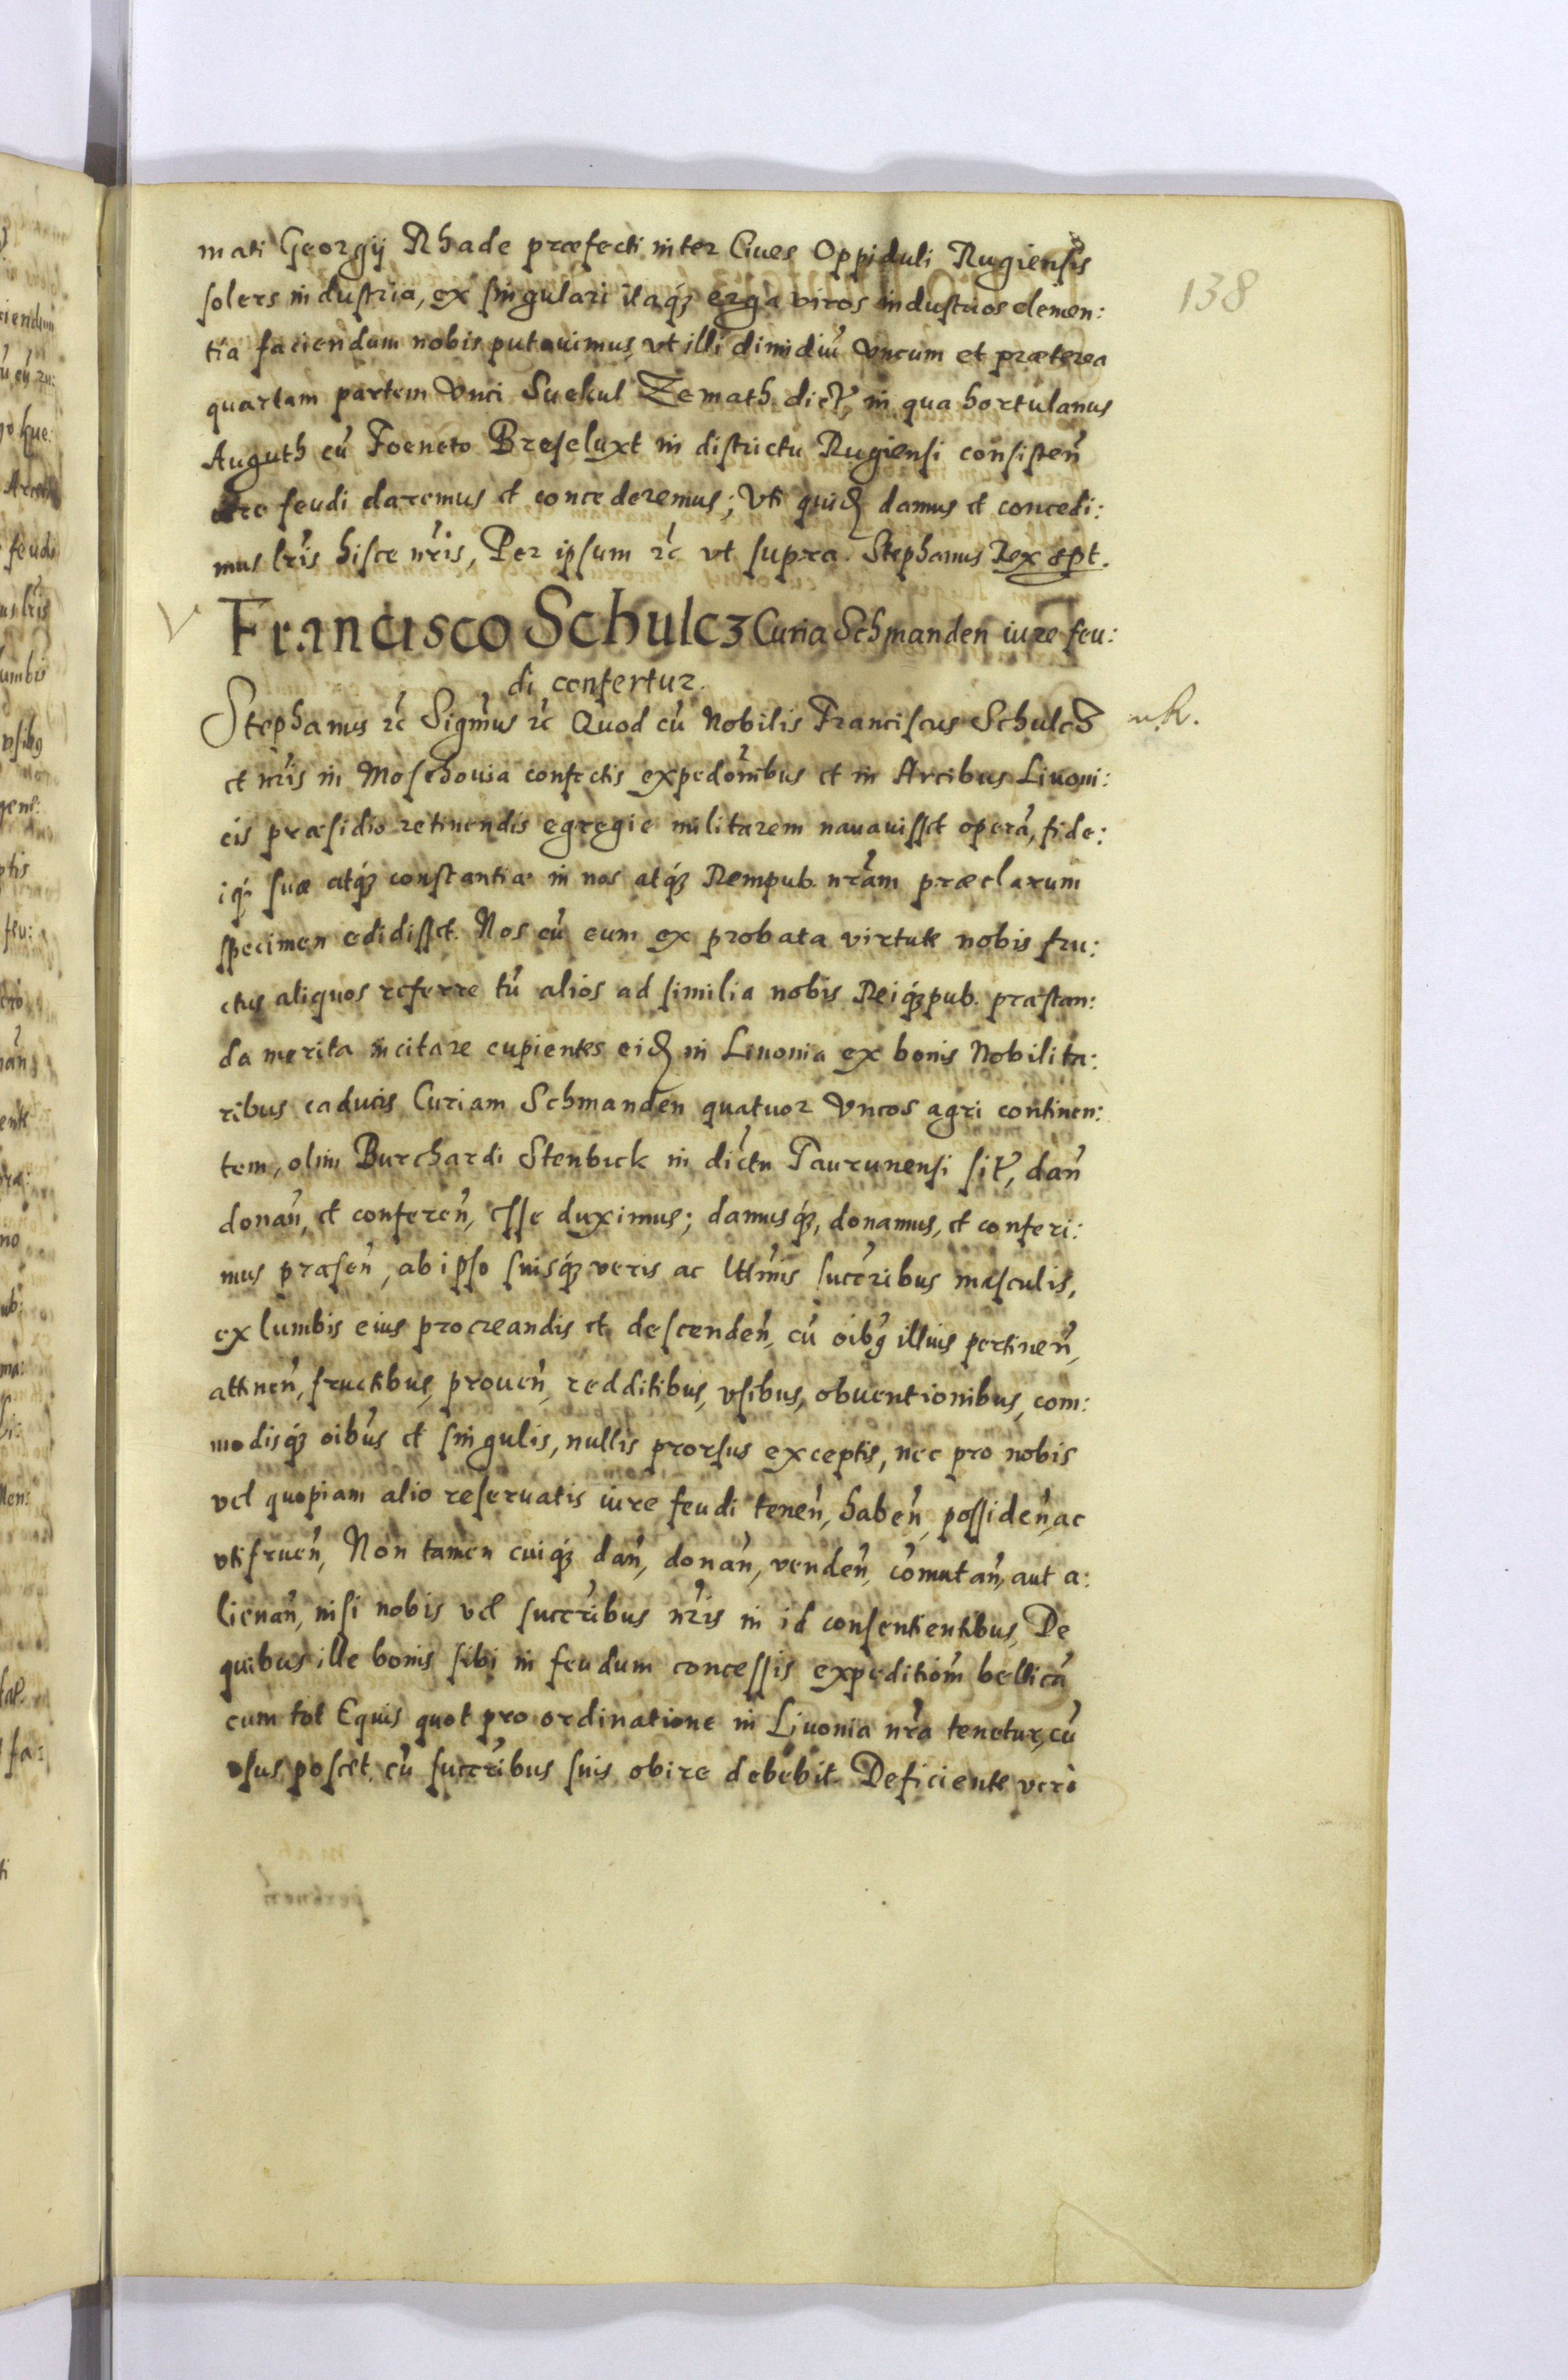 138
mati Georgÿ Rhade præfecti inter Ciues Oppiduli Rugiensis
solers industria, ex singulari itaq́ꝫ erga viros industrios clemen:
tia faciendum nobis putauimus, vt illi dimidiũ Vncum et præterea
quartam partem Vnci Suekul Zemath dict̃, in qua hortulanus
Auguth cũ Foeneto Breseluxt in districtu Rugiensi consisteñ
iure feudi daremus et concederemus; Vti quidẽ damus et concedi:
mus lr̃is hisce nr̃is, Per ipsum ꝛc̃ vt supra. Stephanus Rex spt.
Francisco Schulcz Curia Schmanden iure feu:
di confertur.
Stephanus ꝛc̃ Sigm̃us ꝛc̃ Quod cũ Nobilis Franciscus Schulcz
et nr̃is in Moschouia confectis expedom̃ibus et in Arcibus Liuoni:
cis præsidio retinendis egregie militarem nauauisset operã, fide:
iq́ suæ atq́ꝫ constantiæ in nos atq́ꝫ Rempub. nr̃am præclarum
specimen edidisset. Nos cũ eum ex probata virtute nobis fru:
ctus aliquos referre tũ alios ad similia nobis Reiq́ꝫpub. præstan:
da merita incitare cupientes eidẽ in Liuonia ex bonis Nobilita:
ribus caducis Curiam Schmanden quatuor Vncos agri continen:
tem, olim Burchardi Stenbick in dictũ Taurunensi sit̃, dañ
donañ, et confereñ, esse duximus; damusq́ꝫ, donamus, et conferi:
mus præseñ, ab ipso suisq́ꝫ veris ac lttm̃is succr̃ibus masculis,
ex lumbis eius procreandis et descendeñ, cũ oibꝰ illius pertineñ,
attineñ, fructibus, proueñ, redditibus, vsibus, obuentionibus, com:
modisq́ꝫ oibũs et singulis, nullis prorsus exceptis, nec pro nobis
vel quopiam alio reseruatis iure feudi teneñ, habeñ, possideñ, ac
vtifrueñ, Non tamen cuiq́ꝫ dañ, donañ, vendeñ, com̃utañ, aut a:
lienañ, nisi nobis vel succr̃ibus nr̃is in id consentientibus, De
quibus ille bonis sibi in feudum concessis expeditiom̃ bellicã
cum tot Equis quot pro ordinatione in Liuonia nr̃a tenetur, cũ
vsus poscet, cũ succr̃ibus suis obire debebit. Deficiente verò